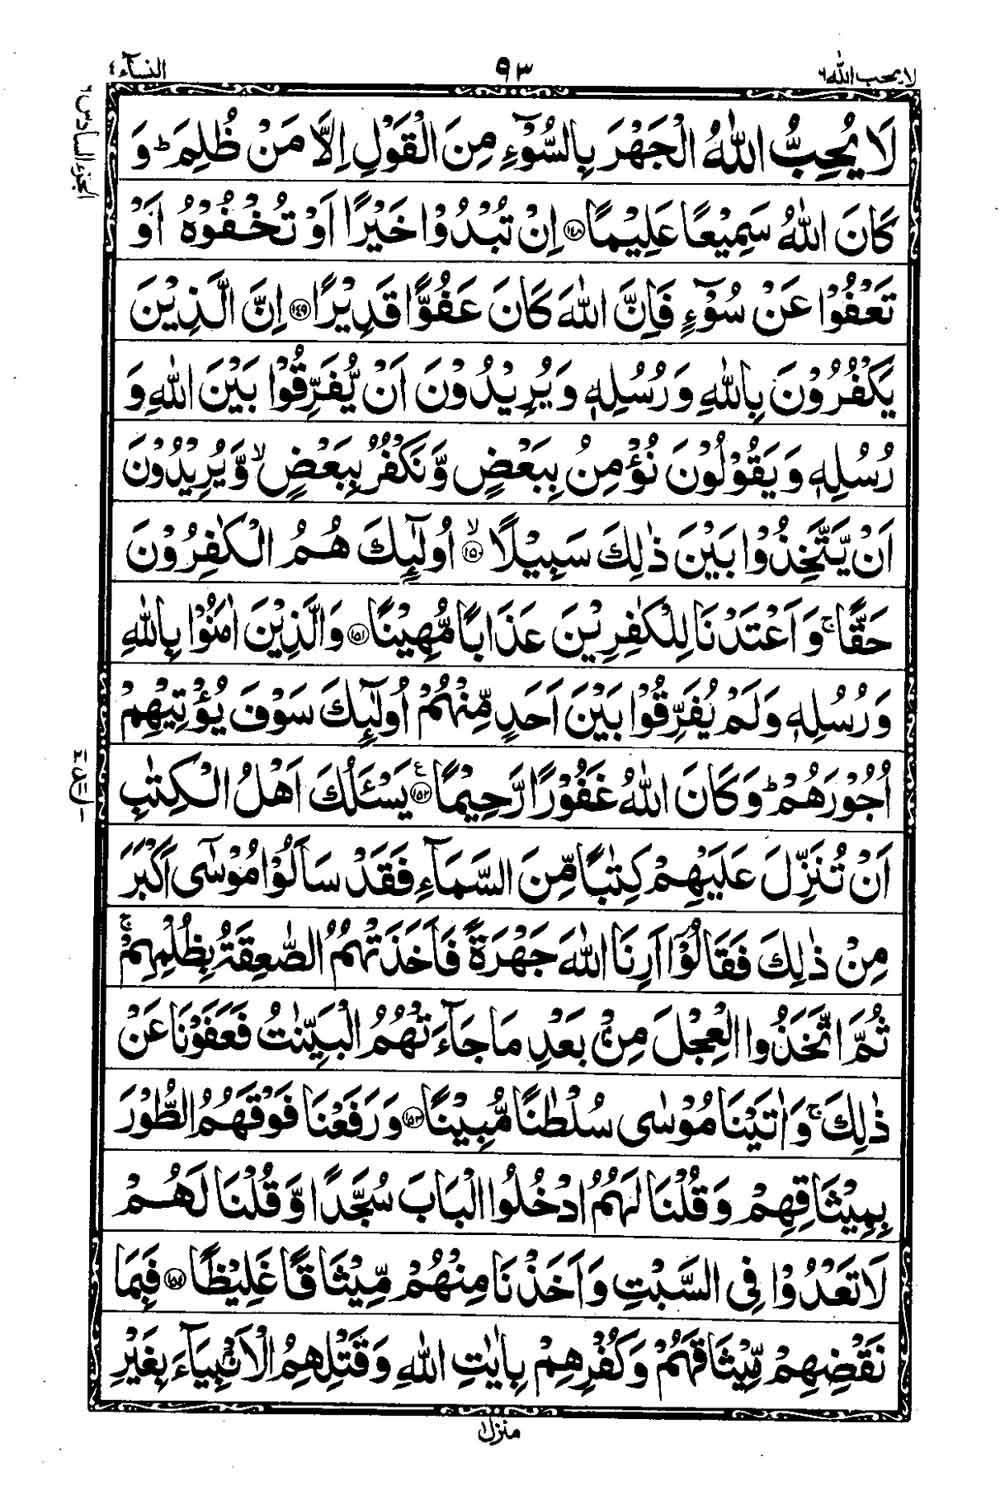 لا یحب الله ٦
٩٣
النسآء ٤
الجزء السادس ٦
لَا يُحِبُّ اللّٰهُ الْجَهْرَ بِالسُّوْٓءِ مِنَ الْقَوْلِ اِلَّا مَنْ ظُلِمَ ؕ وَ
كَانَ اللّٰهُ سَمِيْعًا عَلِيْمًا ﴿۱۴۸﴾ اِنْ تُبْدُوْا خَيْرًا اَوْ تُخْفُوْهُ اَوْ
تَعْفُوْا عَنْ سُوْٓءٍ فَاِنَّ اللّٰهَ كَانَ عَفُوًّا قَدِيْرًا ﴿۱۴۹﴾ اِنَّ الَّذِيْنَ
يَكْفُرُوْنَ بِاللّٰهِ وَ رُسُلِهٖ وَ يُرِيْدُوْنَ اَنْ يُّفَرِّقُوْا بَيْنَ اللّٰهِ وَ
رُسُلِهٖ وَ يَقُوْلُوْنَ نُؤْمِنُ بِبَعْضٍ وَّ نَكْفُرُ بِبَعْضٍ ۙ وَّ يُرِيْدُوْنَ
اَنْ يَّتَّخِذُوْا بَيْنَ ذٰلِكَ سَبِيْلًا ﴿۱۵۰﴾ ۙ اُولٰٓئِكَ هُمُ الْكٰفِرُوْنَ
حَقًّا ۚ وَ اَعْتَدْنَا لِلْكٰفِرِيْنَ عَذَابًا مُّهِيْنًا ﴿۱۵۱﴾ وَ الَّذِيْنَ اٰمَنُوْا بِاللّٰهِ
وَ رُسُلِهٖ وَ لَمْ يُفَرِّقُوْا بَيْنَ اَحَدٍ مِّنْهُمْ اُولٰٓئِكَ سَوْفَ يُؤْتِيْهِمْ
اُجُوْرَهُمْ ؕ وَ كَانَ اللّٰهُ غَفُوْرًا رَّحِيْمًا ﴿۱۵۲﴾ ع يَسْئَلُكَ اَهْلُ الْكِتٰبِ
اَنْ تُنَزِّلَ عَلَيْهِمْ كِتٰبًا مِّنَ السَّمَآءِ فَقَدْ سَاَلُوْا مُوْسٰٓى اَكْبَرَ
مِنْ ذٰلِكَ فَقَالُوْٓا اَرِنَا اللّٰهَ جَهْرَةً فَاَخَذَتْهُمُ الصّٰعِقَةُ بِظُلْمِهِمْ ۚ
ثُمَّ اتَّخَذُوا الْعِجْلَ مِنْۢ بَعْدِ مَا جَآءَتْهُمُ الْبَيِّنٰتُ فَعَفَوْنَا عَنْ
ذٰلِكَ ۚ وَ اٰتَيْنَا مُوْسٰى سُلْطٰنًا مُّبِيْنًا ﴿۱۵۳﴾ وَ رَفَعْنَا فَوْقَهُمُ الطُّوْرَ
بِمِيْثَاقِهِمْ وَ قُلْنَا لَهُمُ ادْخُلُوا الْبَابَ سُجَّدًا وَّ قُلْنَا لَهُمْ
لَا تَعْدُوْا فِى السَّبْتِ وَ اَخَذْنَا مِنْهُمْ مِّيْثَاقًا غَلِيْظًا ﴿۱۵۴﴾ فَبِمَا
نَقْضِهِمْ مِّيْثَاقَهُمْ وَ كُفْرِهِمْ بِاٰيٰتِ اللّٰهِ وَ قَتْلِهِمُ الْاَنْۢبِيَآءَ بِغَيْرِ
منزل ۱